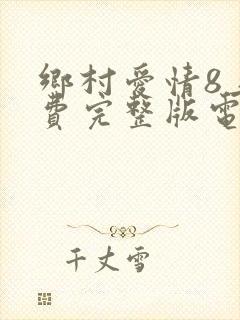 鄉村愛情8
費完整版電
千丈雪